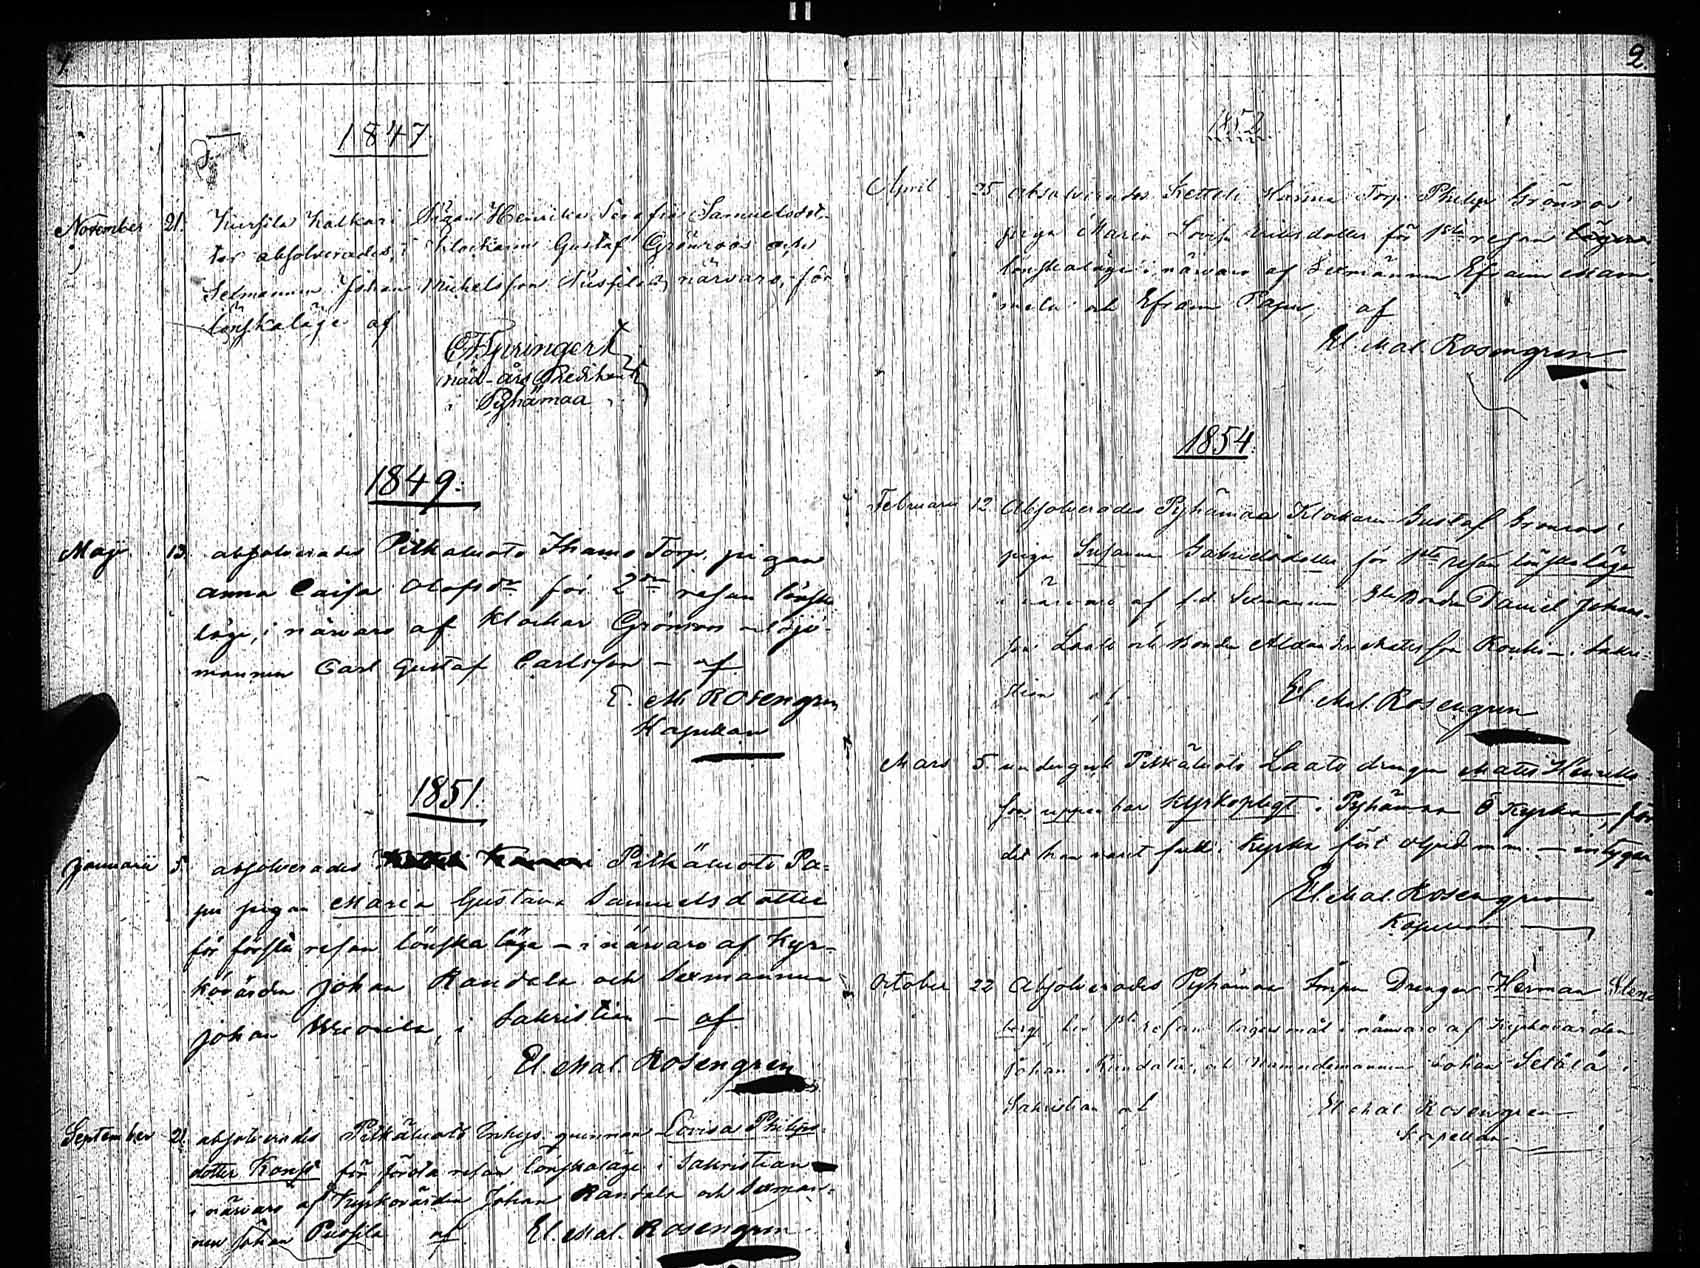 1.
1847
November 21. Kursila Kalkari Pigan Henrika Serafia Samuelsdot-
ter absolverades, i Klockaren Gustaf Grönroos och
Sexmannen Johan Michelsson närvaro, för
lönskaläge af
nåd-års Predikant
i Pyhämaa
1849.
Maji 13. absolverades Pitkäluoto Torp. pigan
Anna Caisa Olofsdr för 2dra resan lönska
läge, i närvaro af Klockar Grönroos
mannen Carl Gustaf Carlsson – af
E. M. Rosengren
Kapellan
1851.
Januarii 5. absolverades Pitkäluoto Pa-
pu pigan Maria Gustava Samuelsdotter
för första resan lönskaläge – i närvaro af Kyr-
kovärden Johan Randala och Sexmannen
Johan i Sakristian – af
El. Mal. Rosengren
September 21. absolverades Pitkäluoto Inhys. quinnan Lovisa Philips-
dotter för första resan lönskaläge i Sakristian
i närvaro af Kyrkovärden Johan Randala och Sexman-
nen Johan af El. Mal. Rosengren
2.
1852
April 25 absolverades Ketteli Torp. Philip Grönroos
piga Maria Lovisa Eriksdotter för 1sta resan
lönskaläge i närvaro af Sexmännen Efraim Mam
mela och Efraim Papu, af
El. Mal. Rosengren
1854.
Februarii 12 Absolverades Pyhämaa Klockaren Gustaf Grönroos
piga Susanna Gabrielsdotter för 1sta resan lönskaläge
i närvaro af f.d. Sexmannen Bonden Daniel Johans-
son Laato och Bonden Alexander Matsson i Sakri-
stian af El. Mal. Rosengren
Mars 5. undergick Pitkäluoto Laato drengen Matts Henriks-
son uppenbar Kyrkopligt i Pyhämaa Kyrka, för
det han varit full i Kyrka m.m. – intygar
El. Mal. Rosengren
Kapellan
October 22 Absolverades Pyhämaa Drengen Herman
berg för 1sta resan lägersmål i närvaro af Kyrkovärden
Johan Randala och Nämndemannen Johan Setälä i
Sakristian af El. Mal. Rosengren
Kapellan